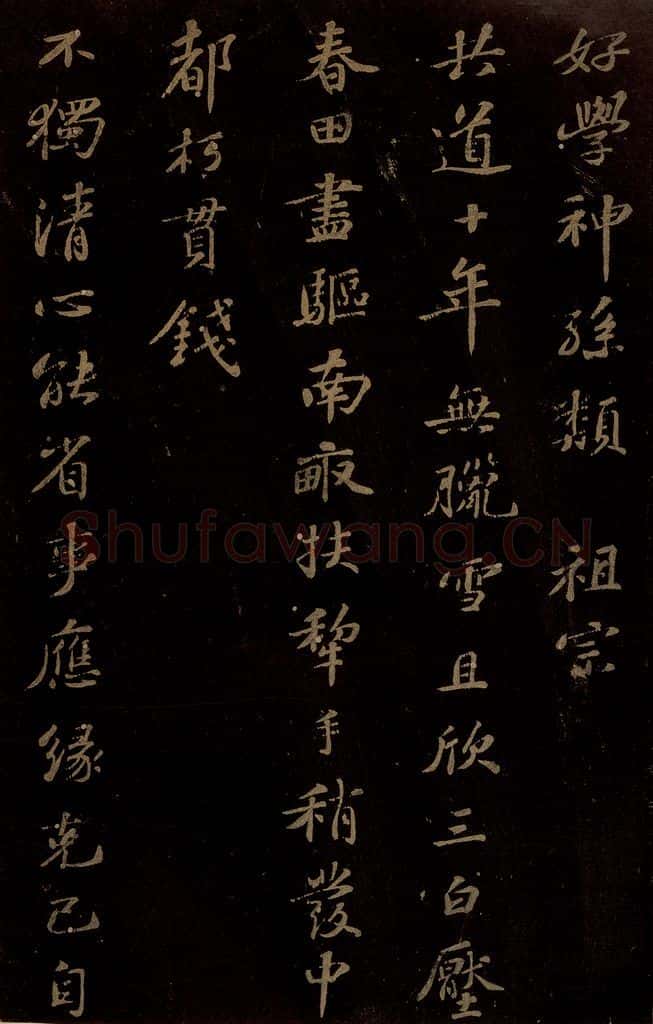 好學神孫類 祖宗
共道十年無臘雪且欣三白壓
春田盡驅南畝扶犂手稍發中
都朽貫錢
不獨清心能省事應緣克己自
Shufawang.CN